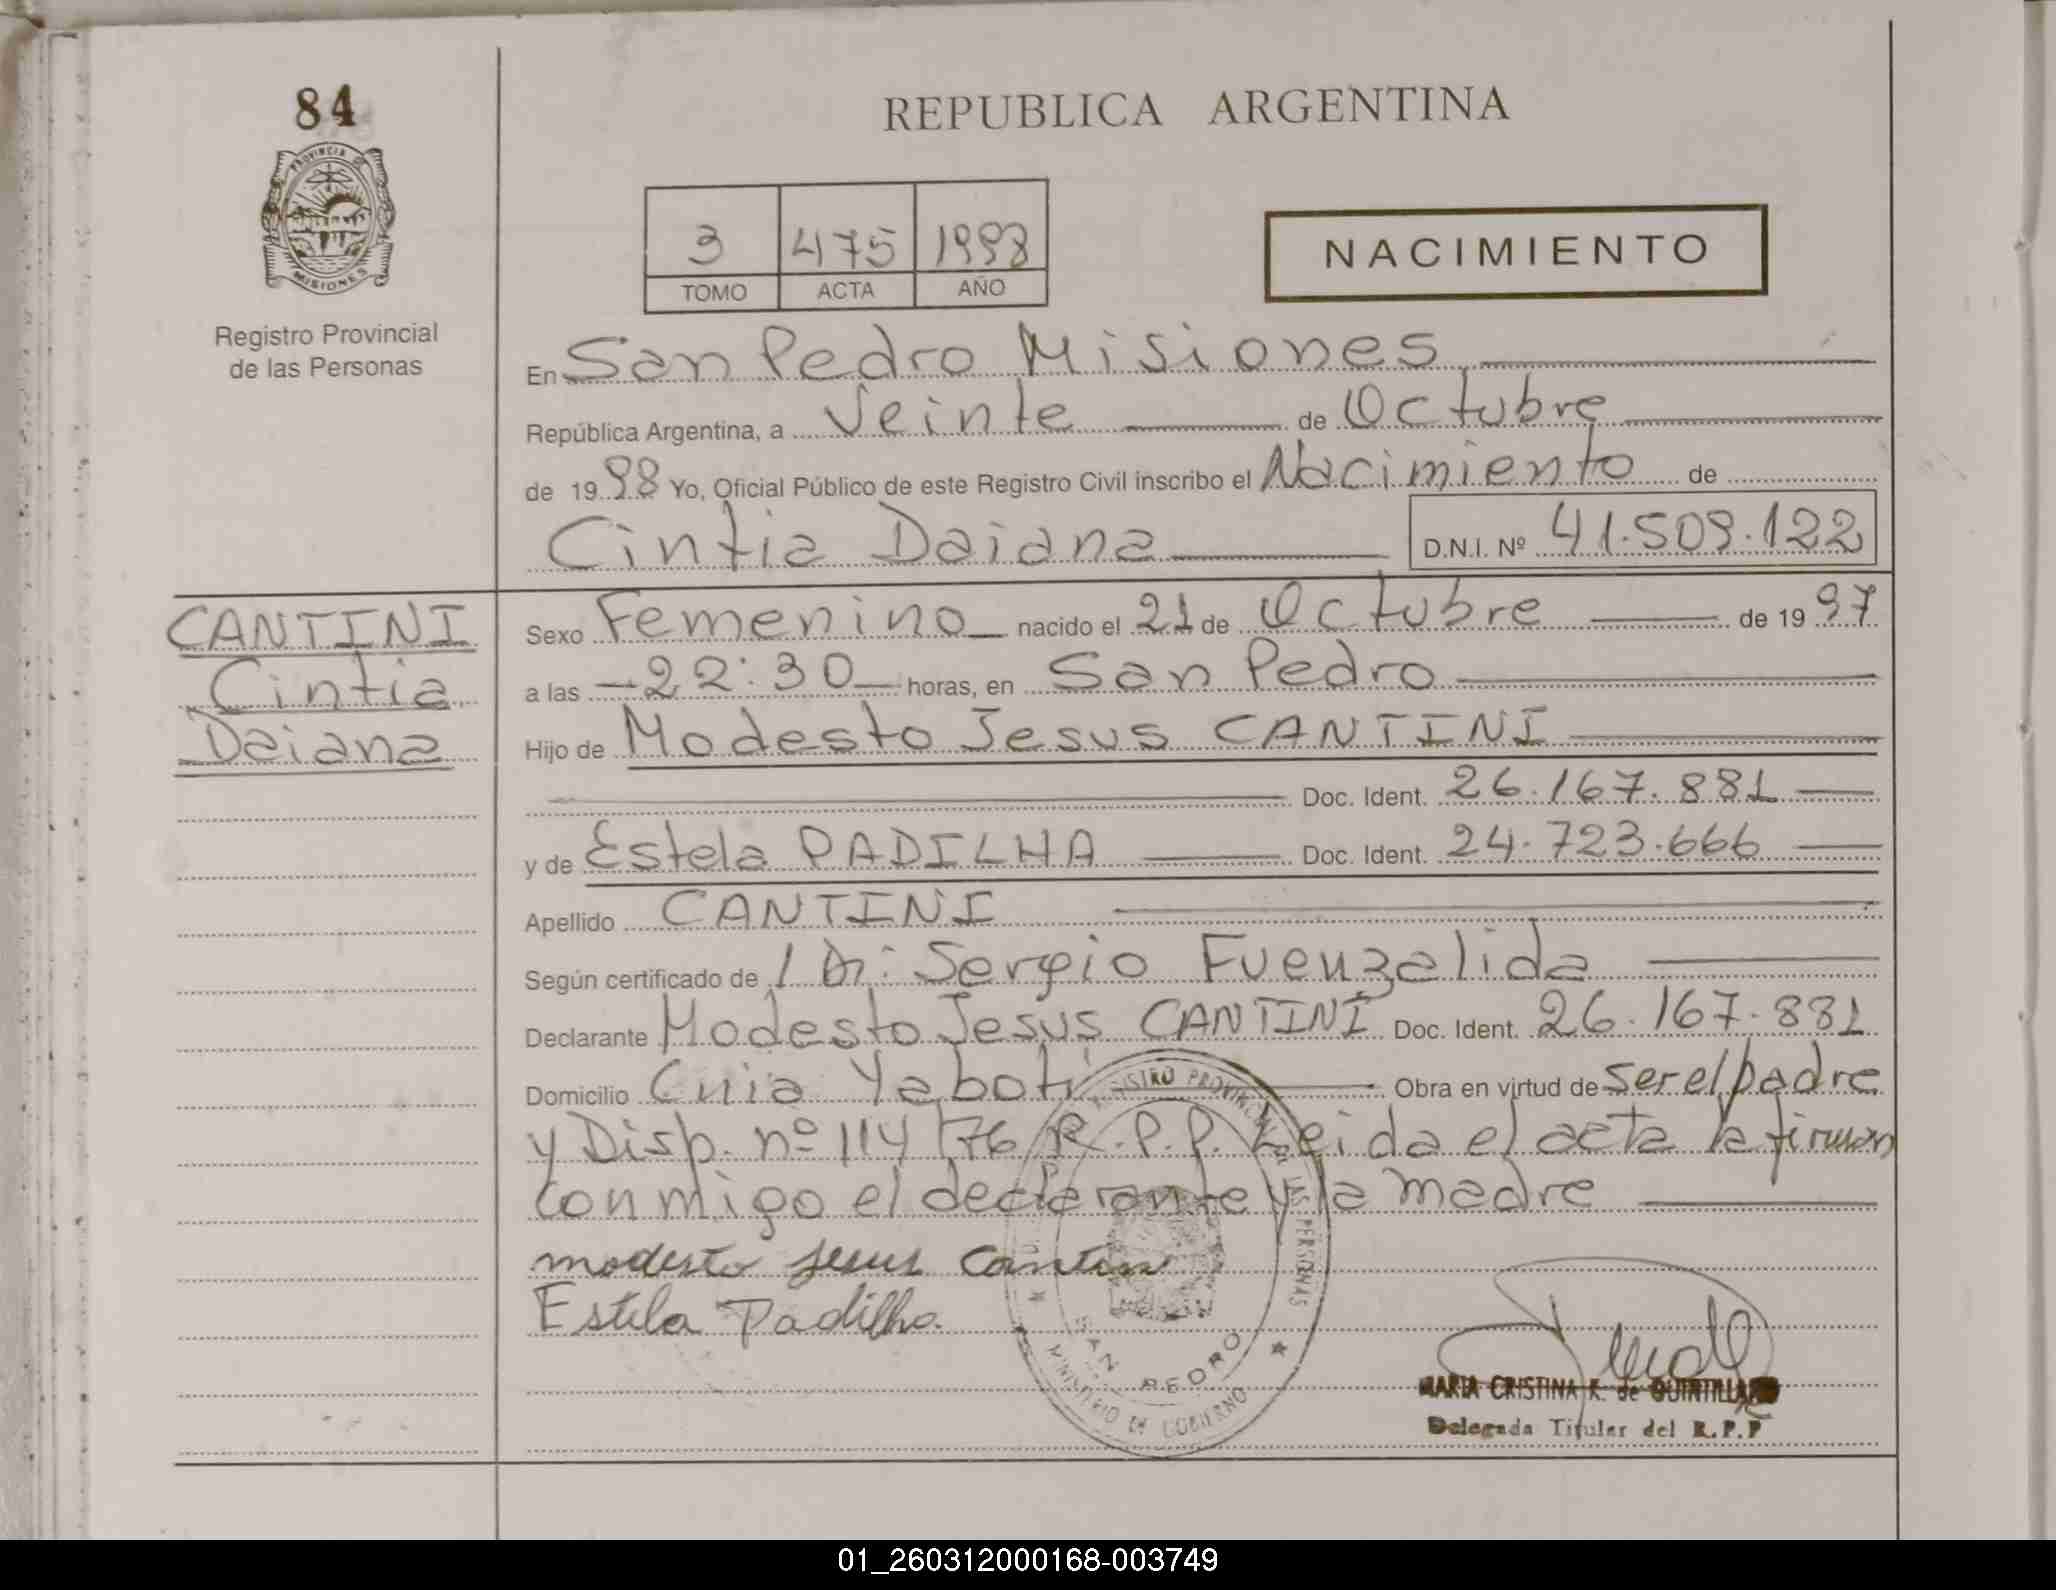 84
REPUBLICA ARGENTINA
PROVINCIA DE
MISIONES
Registro Provincial
de las Personas
3 475 1998
TOMO ACTA AÑO
NACIMIENTO
En San Pedro Misiones
República Argentina, a Veinte de Octubre
de 1998 Yo, Oficial Público de este Registro Civil inscribo el Nacimiento de
Cintia Daiana D.N.I. Nº 41.509.122
CANTINI
Cintia
Daiana
Sexo Femenino nacido el 21 de Octubre de 1997
a las 22:30 horas, en San Pedro
Hijo de Modesto Jesus CANTINI
Doc. Ident. 26.167.881
y de Estela PADILHA Doc. Ident. 24.723.666
Apellido CANTINI
Según certificado de Dr: Sergio Fuenzalida
Declarante Modesto Jesus CANTINI Doc. Ident. 26.167.881
Domicilio Cuia Yaboti Obra en virtud de ser el padre
y Disp. nº 114/76 R.P.P. Leida el acta la firman
conmigo el declarante y la madre
modesto Jesus Cantin
Estela Padilha
REGISTRO PROVINCIAL DE LAS PERSONAS
SAN PEDRO
MINISTERIO DE GOBIERNO
MARIA CRISTINA K. de
Delegada Titular del R.P.P
01_260312000168-003749